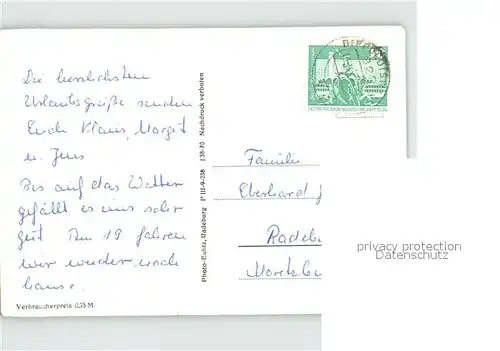 Die herrlichsten
Urlaubsgrüße senden
Euch Klaus, Margit
u. Jens
Bis auf das Wetter
gefällt es uns sehr
gut. Am 19 fahren
wir wieder nach
hause.
Verbraucherpreis 0,25 M
Photo-Eulitz, Radeburg P III-9-258 J 38-70 Nachdruck verboten
Familie
Eberhard
Radeb
Moritzbu
privacy protection
Datenschutz